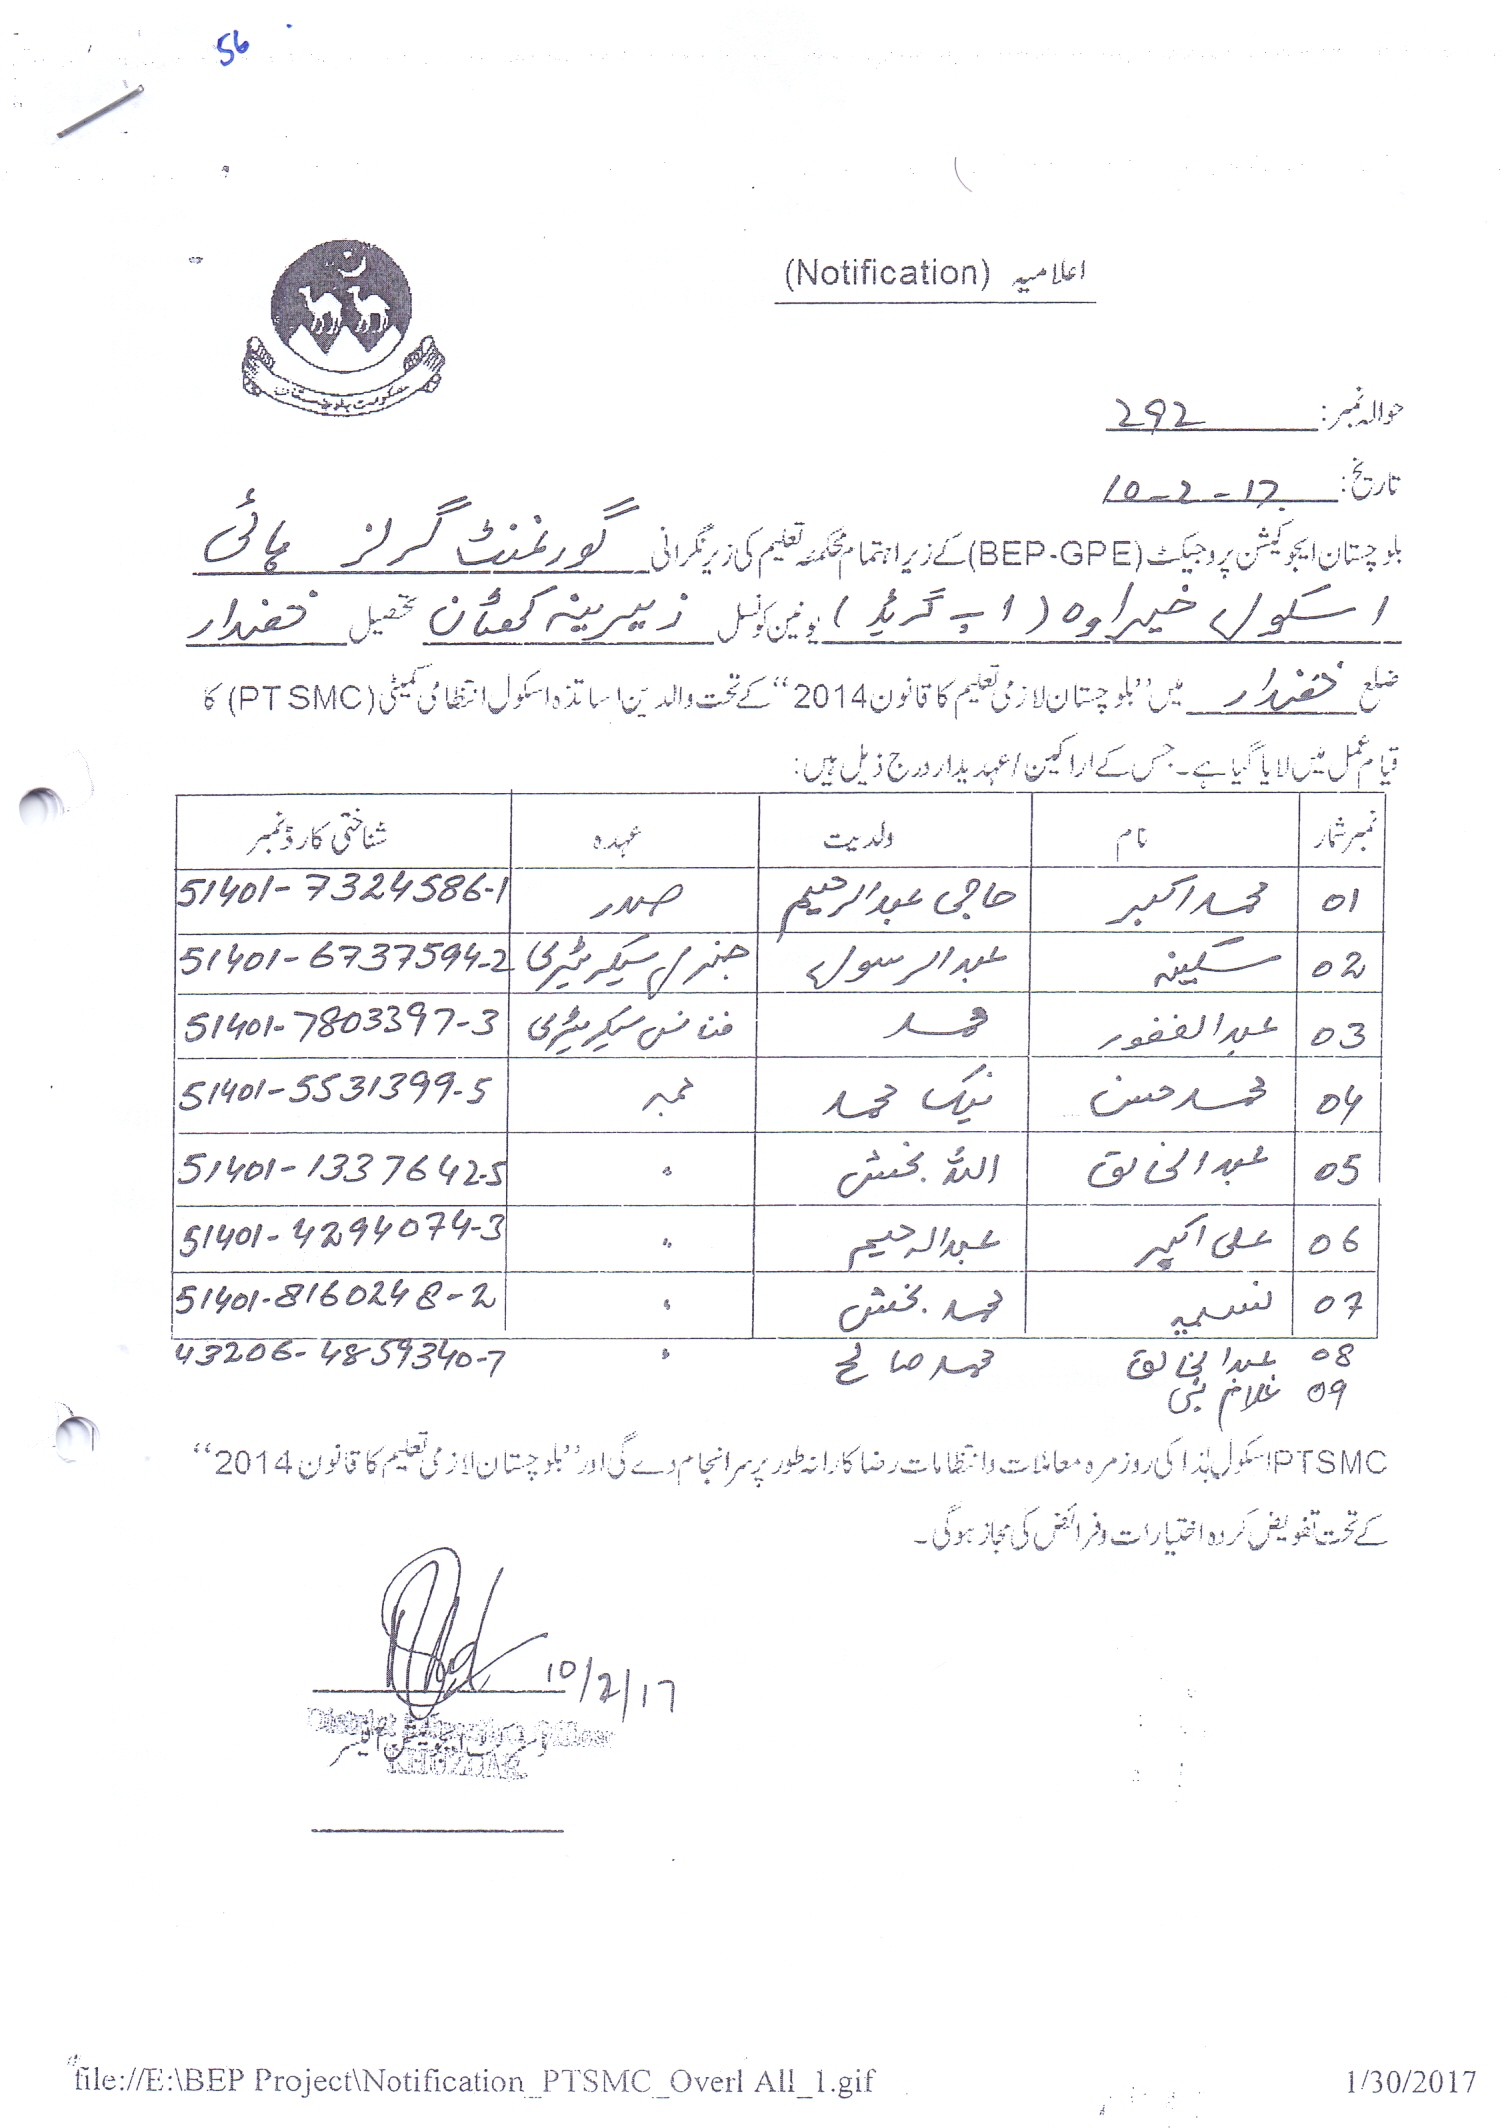 56
اعلامیہ (Notification)
حکومت بلوچستان
حوالہ نمبر: 292
تاریخ: 10-2-17
بلوچستان ایجوکیشن پروجیکٹ (BEP-GPE) کے زیر اہتمام محکمہ تعلیم کی زیر نگرانی گورنمنٹ گرلز ہائی
اسکول خیراوہ (اپ گریڈ) یونین کونسل زیرینہ کھٹان تحصیل خضدار
ضلع خضدار میں "بلوچستان لازمی تعلیم کا قانون 2014" کے تحت والدین اساتذہ اسکول انتظامی کمیٹی (PTSMC) کا
قیام عمل میں لایا گیا ہے۔ جس کے اراکین/عہدیدار درج ذیل ہیں:
نمبر شمار نام ولدیت عہدہ شناختی کارڈ نمبر
01 محمد اکبر حاجی عبدالرحیم صدر 51401-7324586-1
02 سکینہ عبدالرسول جنرل سیکریٹری 51401-6737594-2
03 عبدالغفور محمد فنانس سیکریٹری 51401-7803397-3
04 محمد حسن نیک محمد ممبر 51401-5531399-5
05 عبدالخالق اللہ بخش " 51401-1337642-5
06 علی اکبر عبدالرحیم " 51401-4294074-3
07 نسیمہ محمد بخش " 51401-8160248-2
08 عبدالخالق محمد صالح " 43206-4859340-7
09 غلام نبی
PTSMC اسکول ہٰذا کی روزمرہ معاملات و انتظامات رضاکارانہ طور پر سرانجام دے گی اور "بلوچستان لازمی تعلیم کا قانون 2014"
کے تحت تفویض کردہ اختیارات و فرائض کی مجاز ہوگی۔
10/2/17
District Education Officer
ڈسٹرکٹ ایجوکیشن آفیسر
KHUZDAR
file://E:\BEP Project\Notification_PTSMC_Overl All_1.gif 1/30/2017